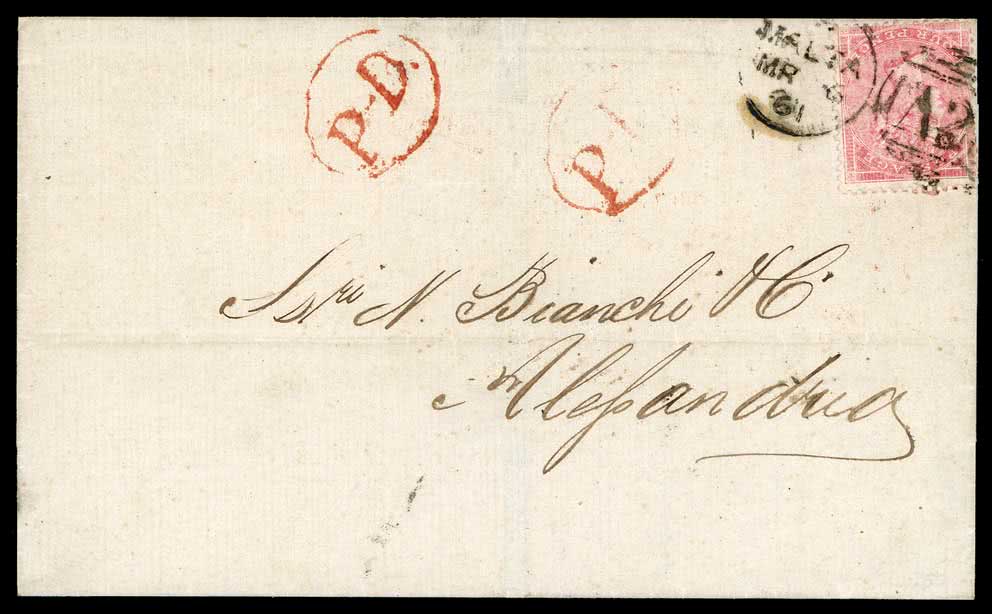 P.D.
P
MALTA
MR 6
61
A 25
Ssri N. Bianchi & C
Alessandria